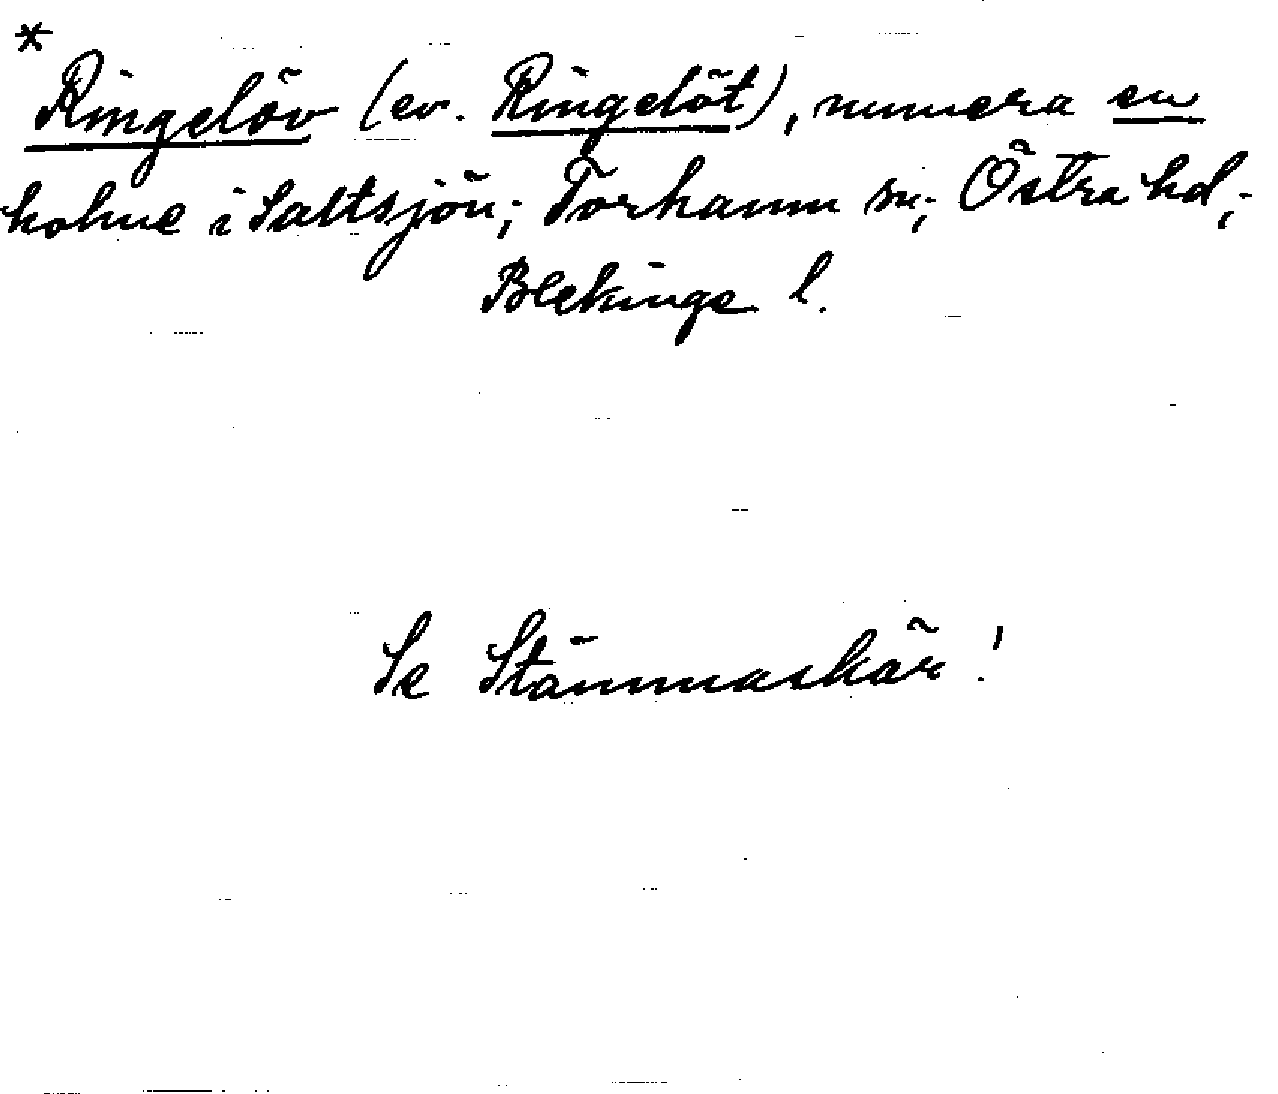 *
Ringelöv (ev. Ringelöt), numera en
holme i Saltsjön; Torhamn sn; Östra hd,
Blekinge l.
Se Stämmaskär!